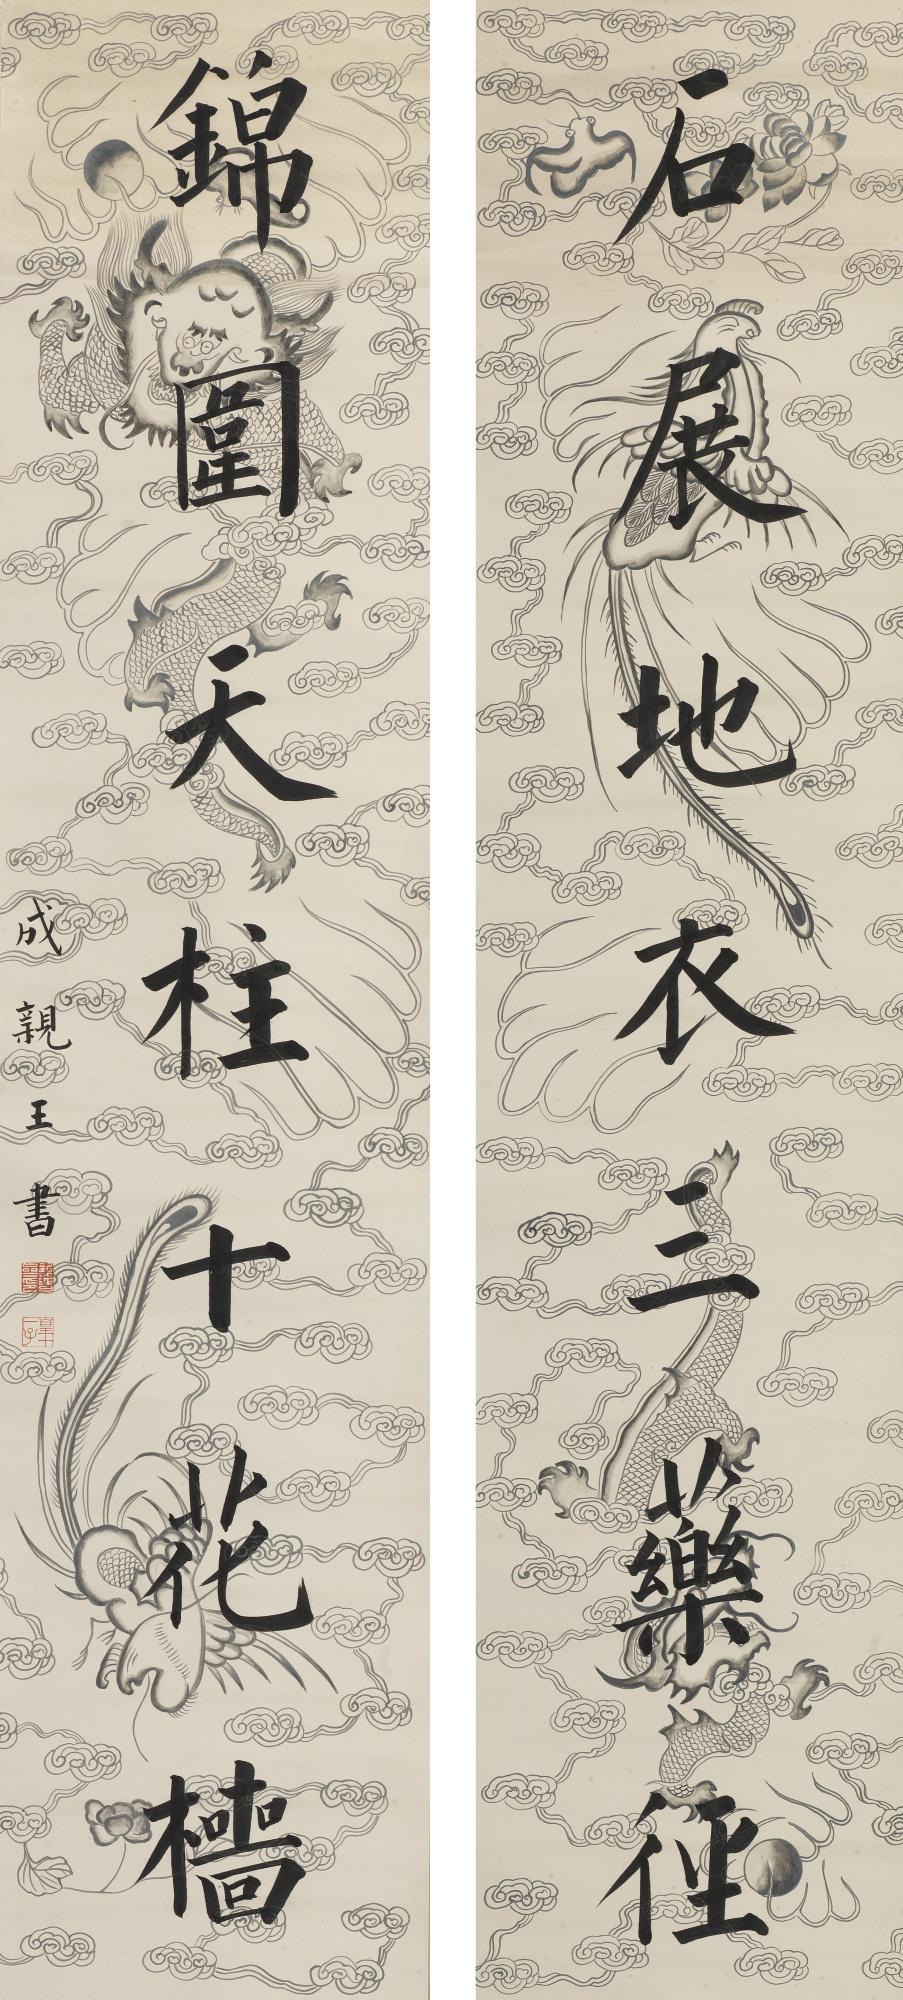 石展地衣三藥徑
錦圍天柱十花檣
成親王書